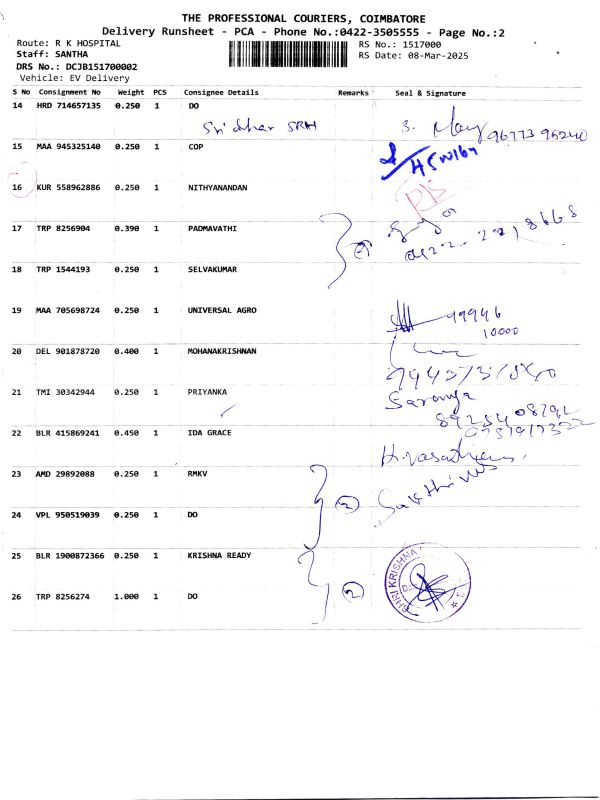 THE PROFESSIONAL COURIERS, COIMBATORE
Delivery Runsheet - PCA - Phone No.:0422-3505555 - Page No.:2
Route: R K HOSPITAL
Staff: SANTHA
DRS No.: DCJB151700002
Vehicle: EV Delivery
RS No.: 1517000
RS Date: 08-Mar-2025
S No Consignment No Weight PCS Consignee Details Remarks Seal & Signature
14 HRD 714657135 0.250 1 DO
Sridhar SRH
15 MAA 945325140 0.250 1 COP
16 KUR 558962886 0.250 1 NITHYANANDAN
17 TRP 8256904 0.390 1 PADMAVATHI
18 TRP 1544193 0.250 1 SELVAKUMAR
19 MAA 705698724 0.250 1 UNIVERSAL AGRO 99946
10000
20 DEL 901878720 0.400 1 MOHANAKRISHNAN
21 TMI 30342944 0.250 1 PRIYANKA Saranya
22 BLR 415869241 0.450 1 IDA GRACE
23 AMD 29892088 0.250 1 RMKV
2
24 VPL 950519039 0.250 1 DO
25 BLR 1900872366 0.250 1 KRISHNA READY SHRI KRISHNA
26 TRP 8256274 1.000 1 DO 2